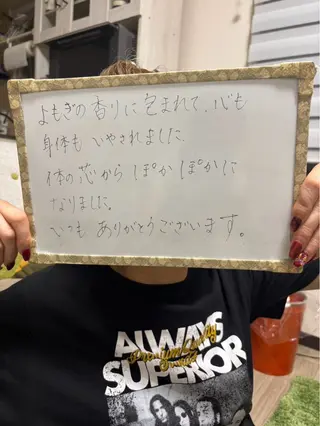 よもぎの香りに包まれて、心も
身体も いやされました。
体の芯から ぽかぽかに
なりました。
いつも ありがとうございます。
ALWAYS
SUPERIOR